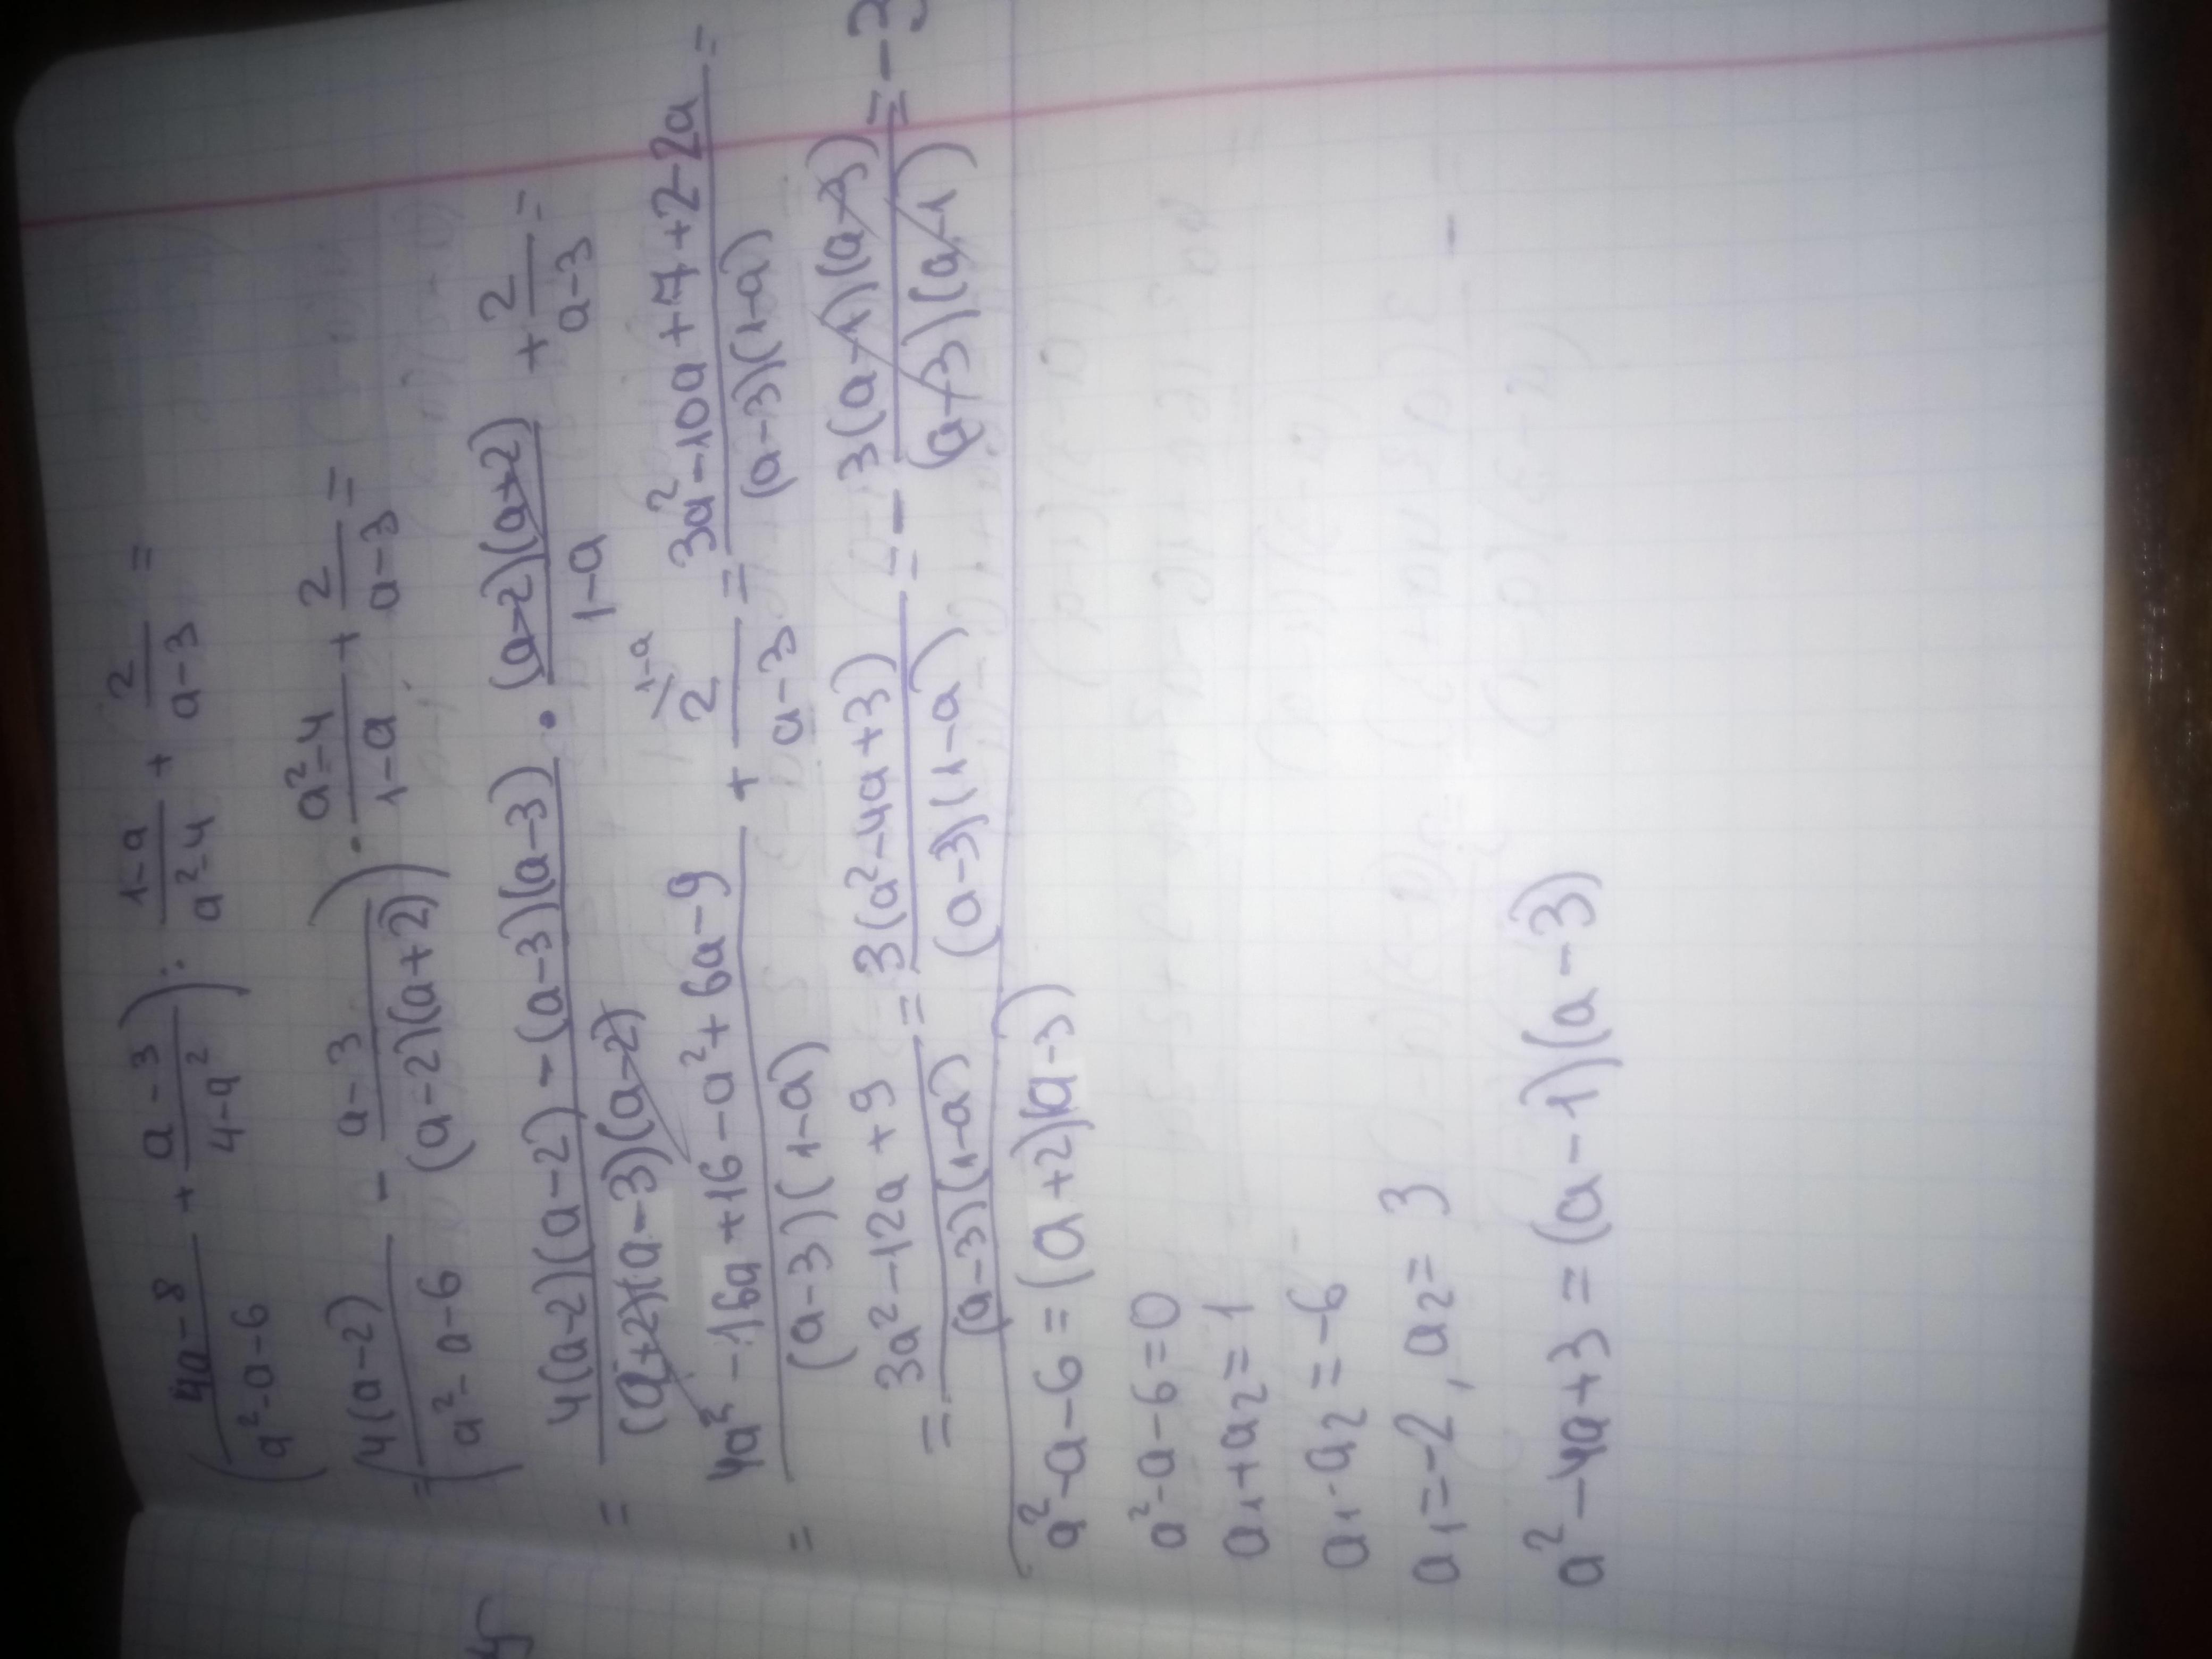 (4a-8/a²-a-6 + a-3/4-a²) : 1-a/a²-4 + 2/a-3 =
=(4(a-2)/a²-a-6 - a-3/(a-2)(a+2)) · a²-4/1-a + 2/a-3 =
= 4(a-2)(a-2)-(a-3)(a-3)/(a+2)(a-3)(a-2) · (a-2)(a+2)/1-a + 2/a-3 =
= 4a²-16a+16-a²+6a-9/(a-3)(1-a) + 2\1-a/a-3 = 3a²-10a+7+2-2a/(a-3)(1-a) =
= 3a²-12a+9/(a-3)(1-a) = 3(a²-4a+3)/(a-3)(1-a) = - 3(a-1)(a-3)/(a-3)(a-1) = -3
a²-a-6=(a+2)(a-3)
a²-a-6=0
a₁+a₂=1
a₁·a₂=-6
a₁=-2, a₂=3
a²-4a+3=(a-1)(a-3)